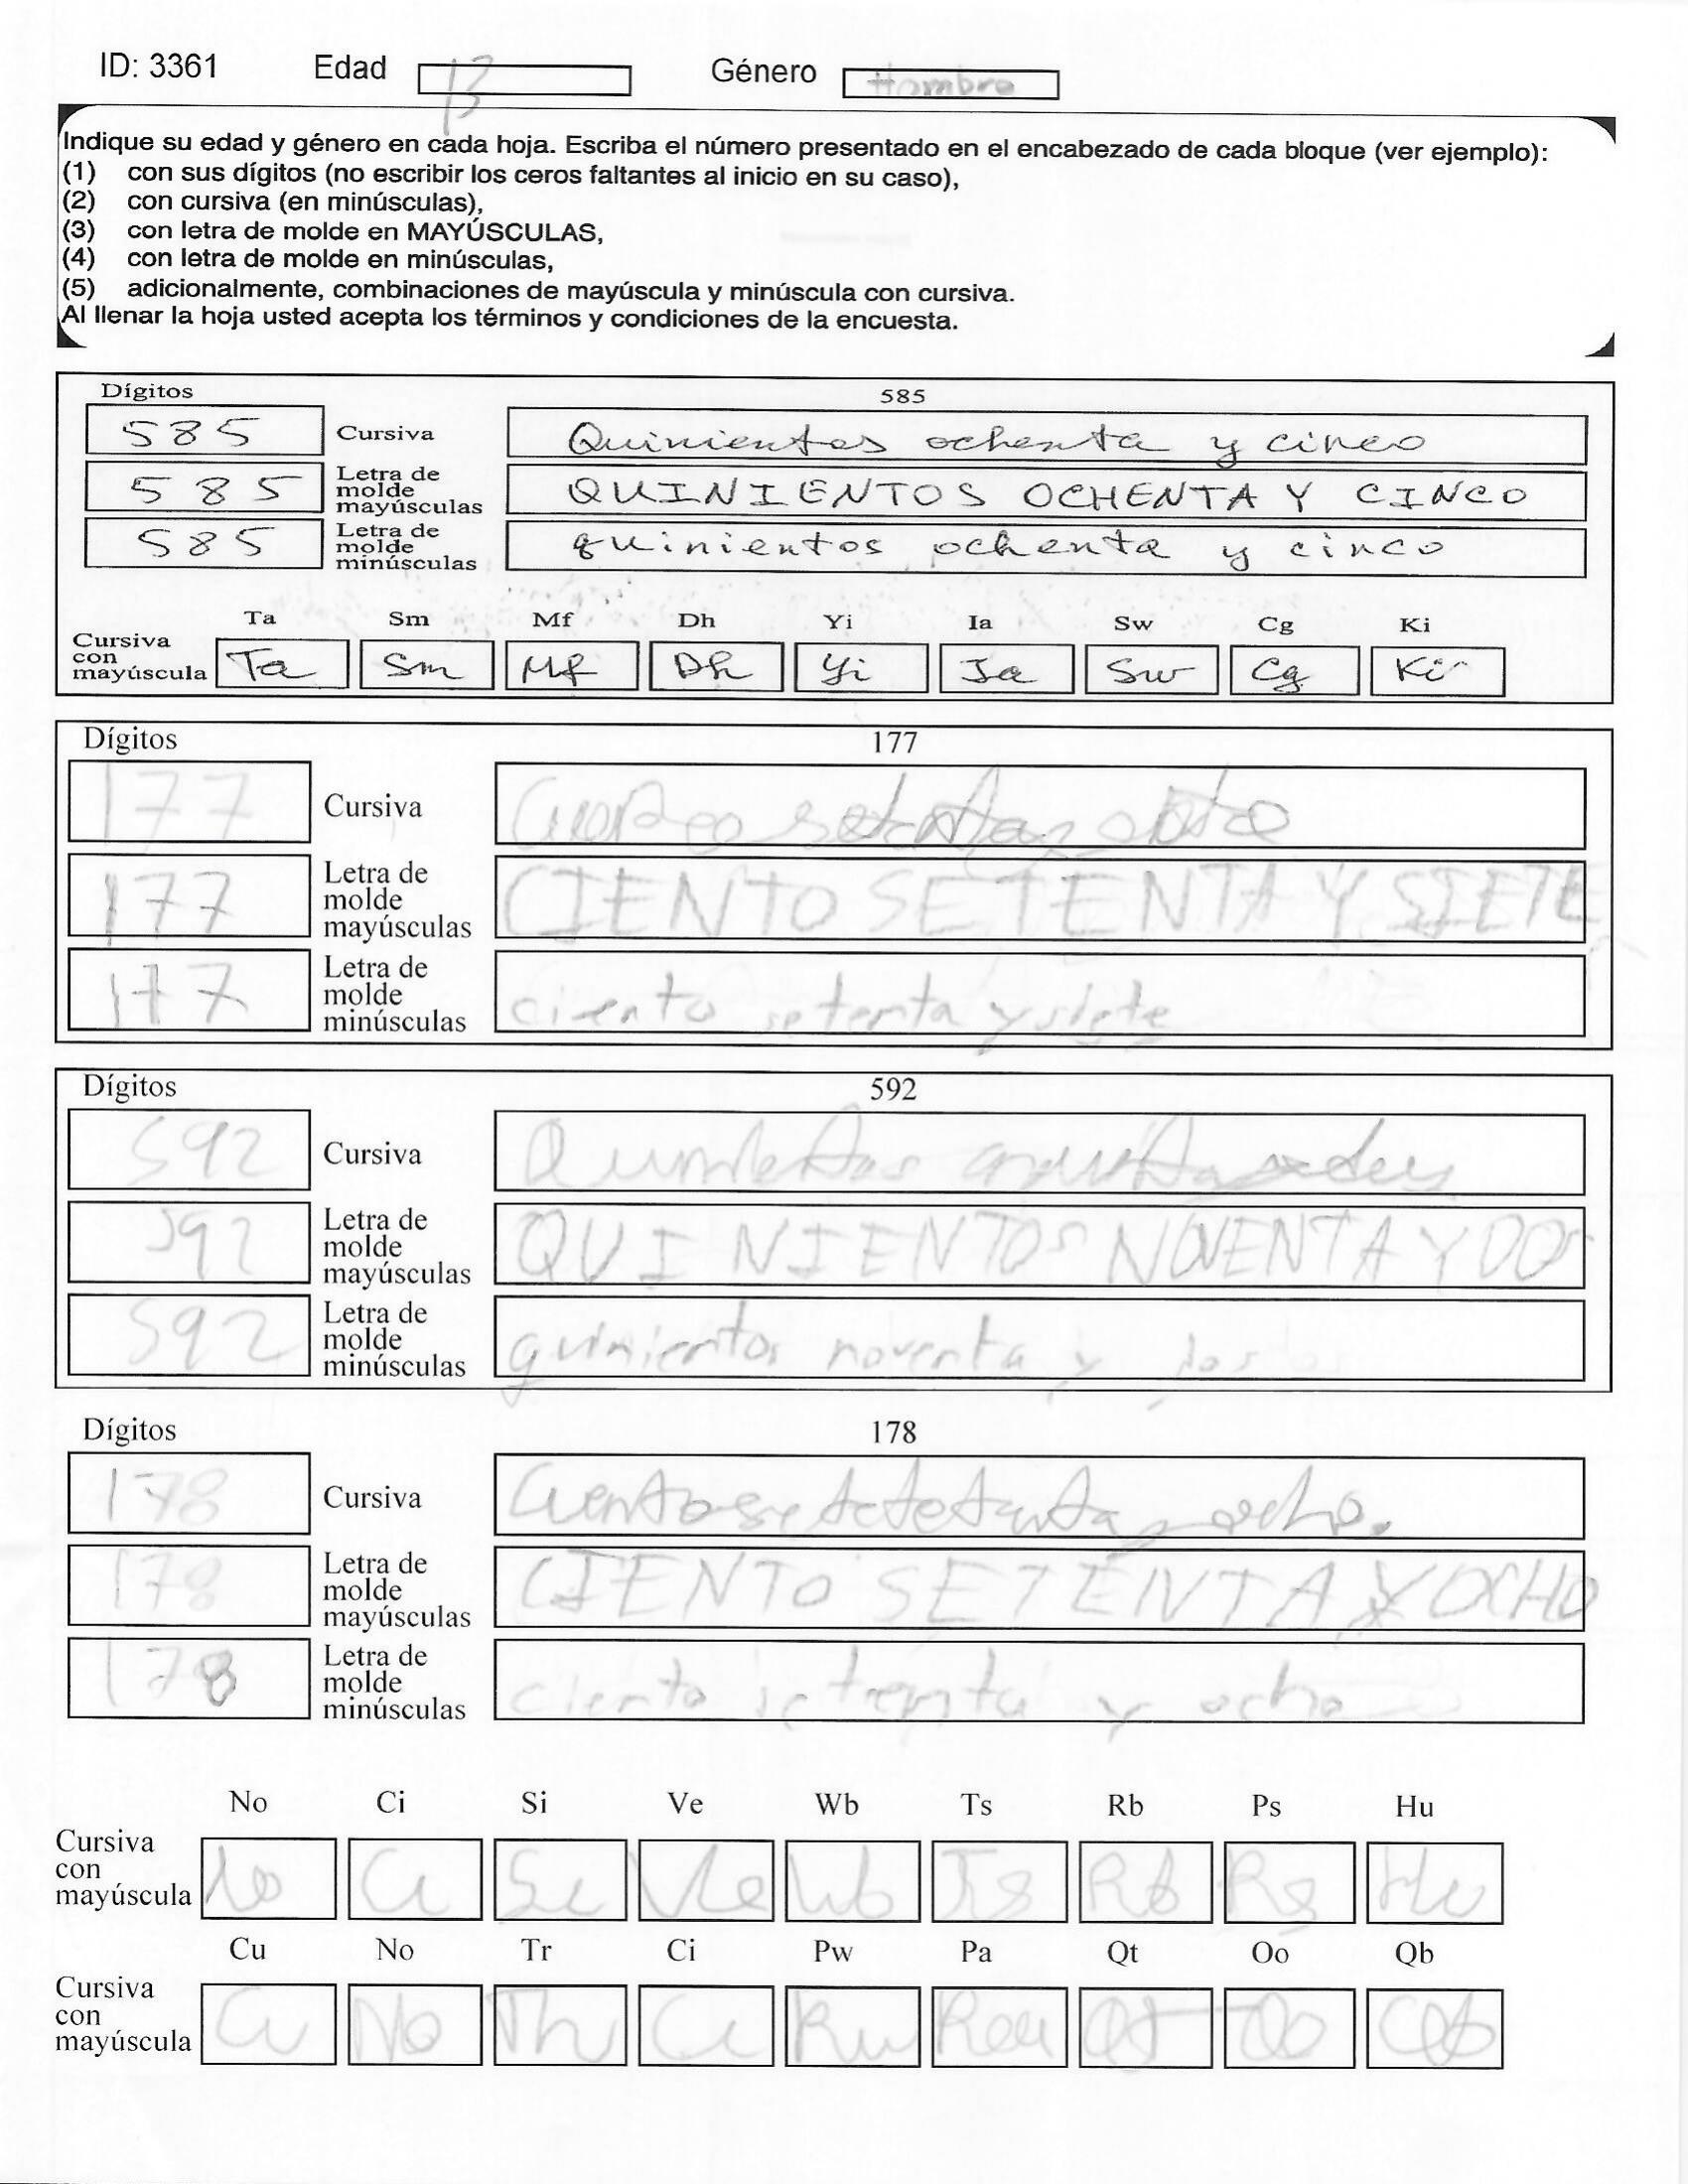 ID: 3361 Edad 13 Género Hombre
Indique su edad y género en cada hoja. Escriba el número presentado en el encabezado de cada bloque (ver ejemplo):
(1) con sus dígitos (no escribir los ceros faltantes al inicio en su caso),
(2) con cursiva (en minúsculas),
(3) con letra de molde en MAYÚSCULAS,
(4) con letra de molde en minúsculas,
(5) adicionalmente, combinaciones de mayúscula y minúscula con cursiva.
Al llenar la hoja usted acepta los términos y condiciones de la encuesta.
Dígitos 585
585 Cursiva Quinientos ochenta y cinco
585 Letra de molde mayúsculas QUINIENTOS OCHENTA Y CINCO
585 Letra de molde minúsculas quinientos ochenta y cinco
Ta Sm Mf Dh Yi Ia Sw Cg Ki
Cursiva con mayúscula Ta Sm Mf Dh Yi Ia Sw Cg Ki
Dígitos 177
177 Cursiva
177 Letra de molde mayúsculas CIENTO SETENTA Y SIETE
177 Letra de molde minúsculas ciento setenta y siete
Dígitos 592
592 Cursiva
592 Letra de molde mayúsculas QUINIENTOS NOVENTA Y DOS
592 Letra de molde minúsculas quinientos noventa y dos
Dígitos 178
178 Cursiva ocho.
178 Letra de molde mayúsculas CIENTO SETENTA Y OCHO
178 Letra de molde minúsculas ciento setenta y ocho
No Ci Si Ve Wb Ts Rb Ps Hu
Cursiva con mayúscula No Ci Si Ve Wb Ts Rb Ps Hu
Cu No Tr Ci Pw Pa Qt Oo Qb
Cursiva con mayúscula Cu No Ci Qt Oo Qb